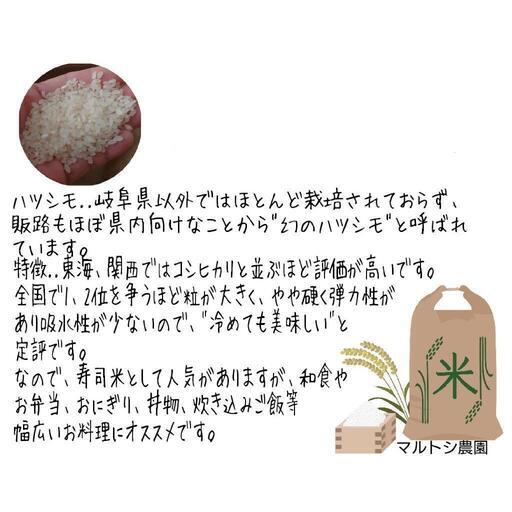 ハツシモ..岐阜県以外ではほとんど栽培されておらず、
販路もほぼ県内向けなことから"幻のハツシモ"と呼ばれ
ています。
特徴..東海、関西ではコシヒカリと並ぶほど評価が高いです。
全国で1、2位を争うほど粒が大きく、やや硬く弾力性が
あり吸水性が少ないので、"冷めても美味しい"と
定評です。
なので、寿司米として人気がありますが、和食や
お弁当、おにぎり、丼物、炊き込みご飯等
幅広いお料理にオススメです。
米
マルトシ農園